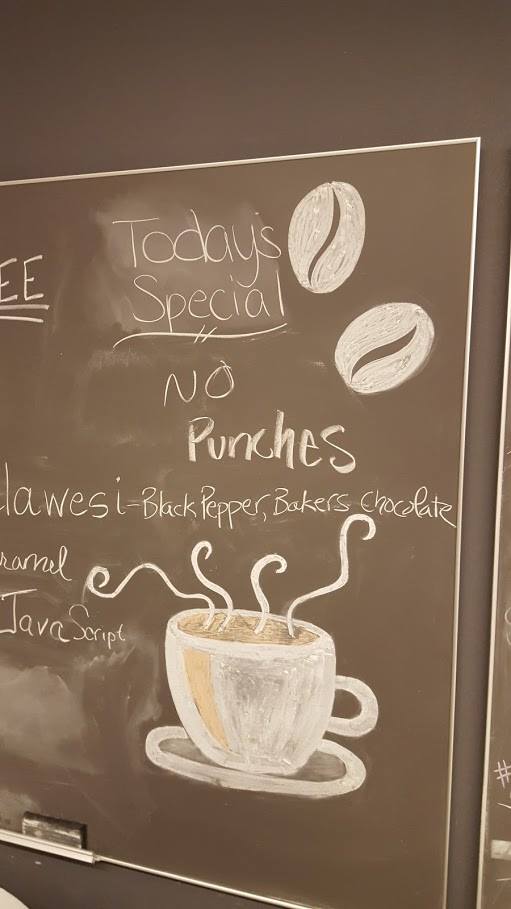 EE
Today's
Special
NO
Punches
lawesi-Black Pepper, Bakers Chocolate
ramel
Java Script
#